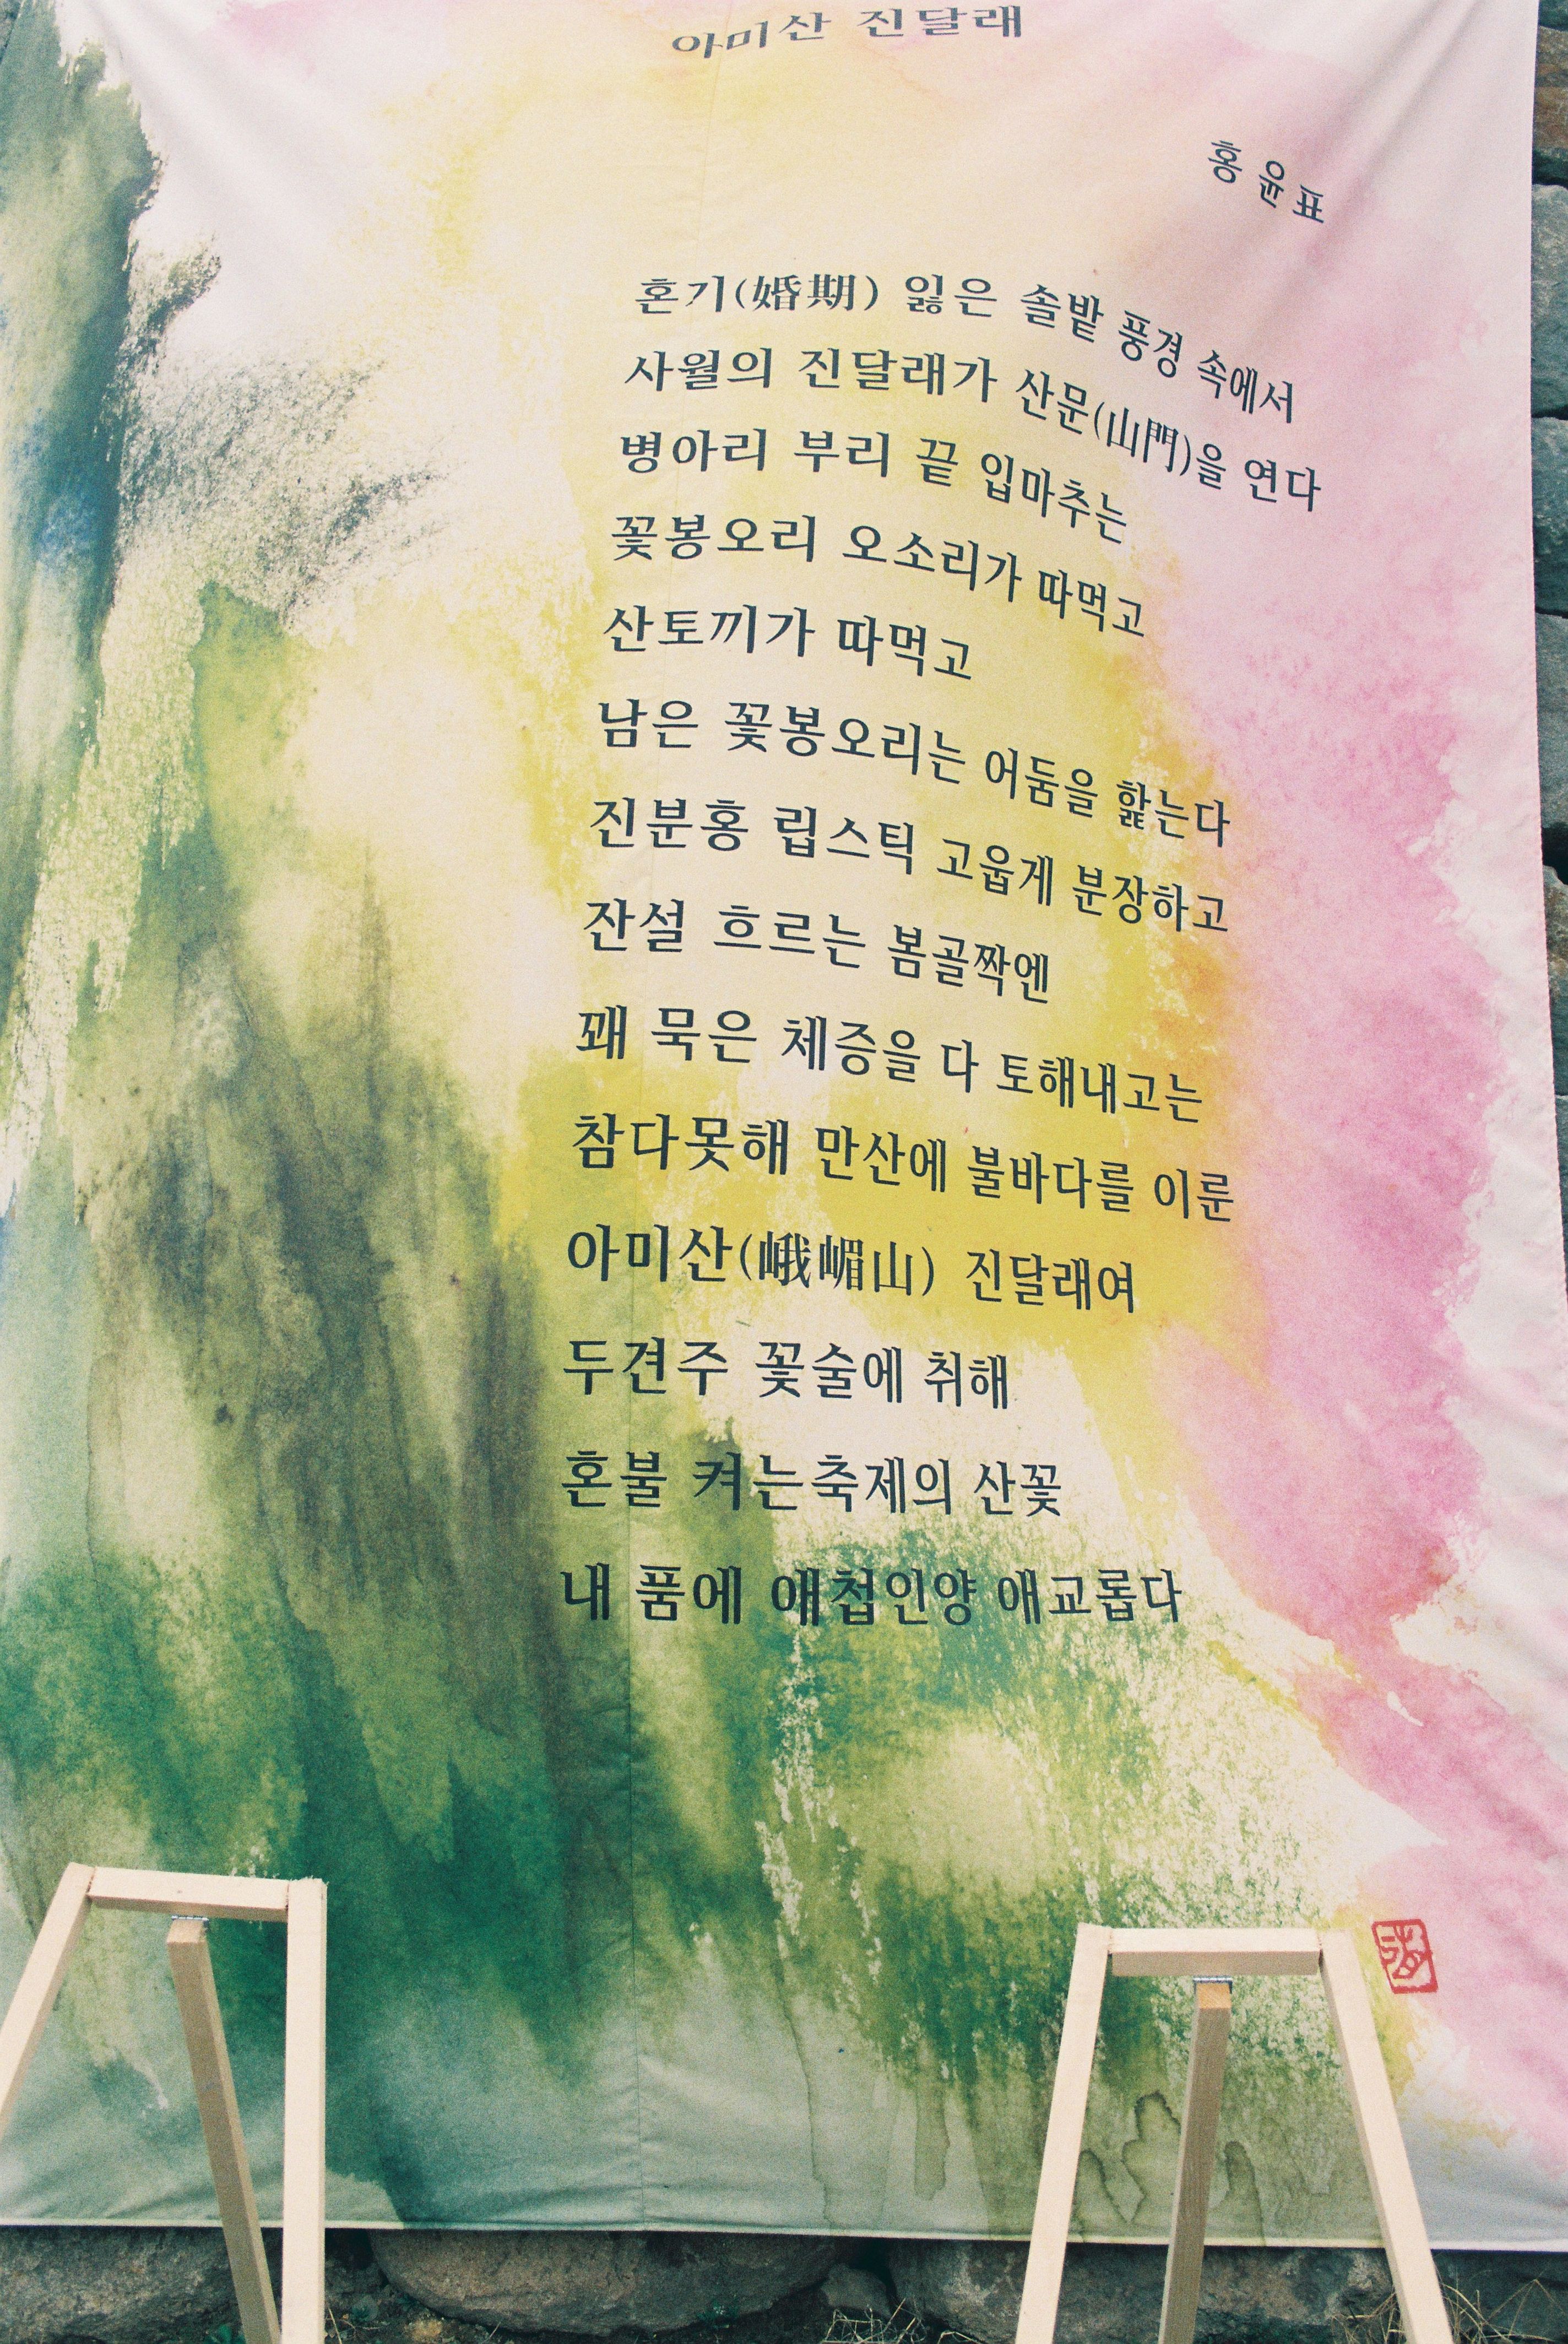 아미산 진달래
홍윤표
혼기(婚期) 잃은 솔밭 풍경 속에서
사월의 진달래가 산문(山門)을 연다
병아리 부리 끝 입마추는
꽃봉오리 오소리가 따먹고
산토끼가 따먹고
남은 꽃봉오리는 어둠을 핥는다
진분홍 립스틱 고웁게 분장하고
잔설 흐르는 봄골짝엔
꽤 묵은 체증을 다 토해내고는
참다못해 만산에 불바다를 이룬
아미산(峨嵋山) 진달래여
두견주 꽃술에 취해
혼불 켜는축제의 산꽃
내 품에 애첩인양 애교롭다